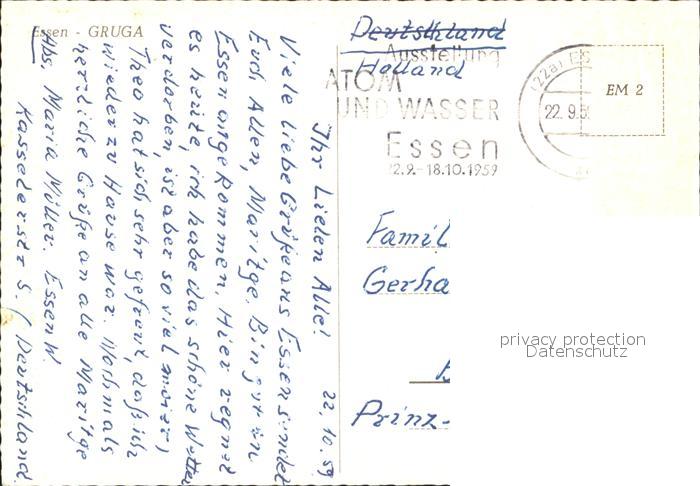 Essen - GRUGA
Ihr Lieben Alle! 22.10.59
Viele liebe Grüße aus Essen sendet
Euch Allen, Maritge. Bin gut in
Essen angekommen. Hier regnet
es heute, ich habe das schöne Wetter
verdorben, ist aber so viel
Theo hat sich sehr gefreut, daß ich
wieder zu Hause war. Nochmals
herzliche Grüße an alle Maritge
Abs. Maria Müller. Essen W.
Kassederstr 5. / Deutschland.
Deutschland
Holland
Ausstellung
ATOM
UND WASSER
Essen
22.9.-18.10.1959
(22a) ES
22.9.59
EM 2
Famil
Gerha
Prinz-
privacy protection
Datenschutz